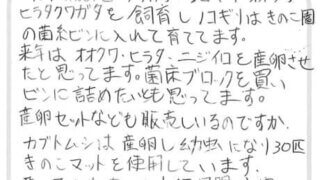 ヒラタクワガタを飼育しノコギリはきのこ園
の菌糸ビンに入れて育ててます。
来年はオオクワ・ヒラタ・ニジイロを産卵させ
たと思ってます。菌床ブロックを買い
ビンに詰めたいとも思ってます。
産卵セットなども販売しいるのですか
カブトムシは産卵し幼虫になり30匹
きのこマットを使用しています.